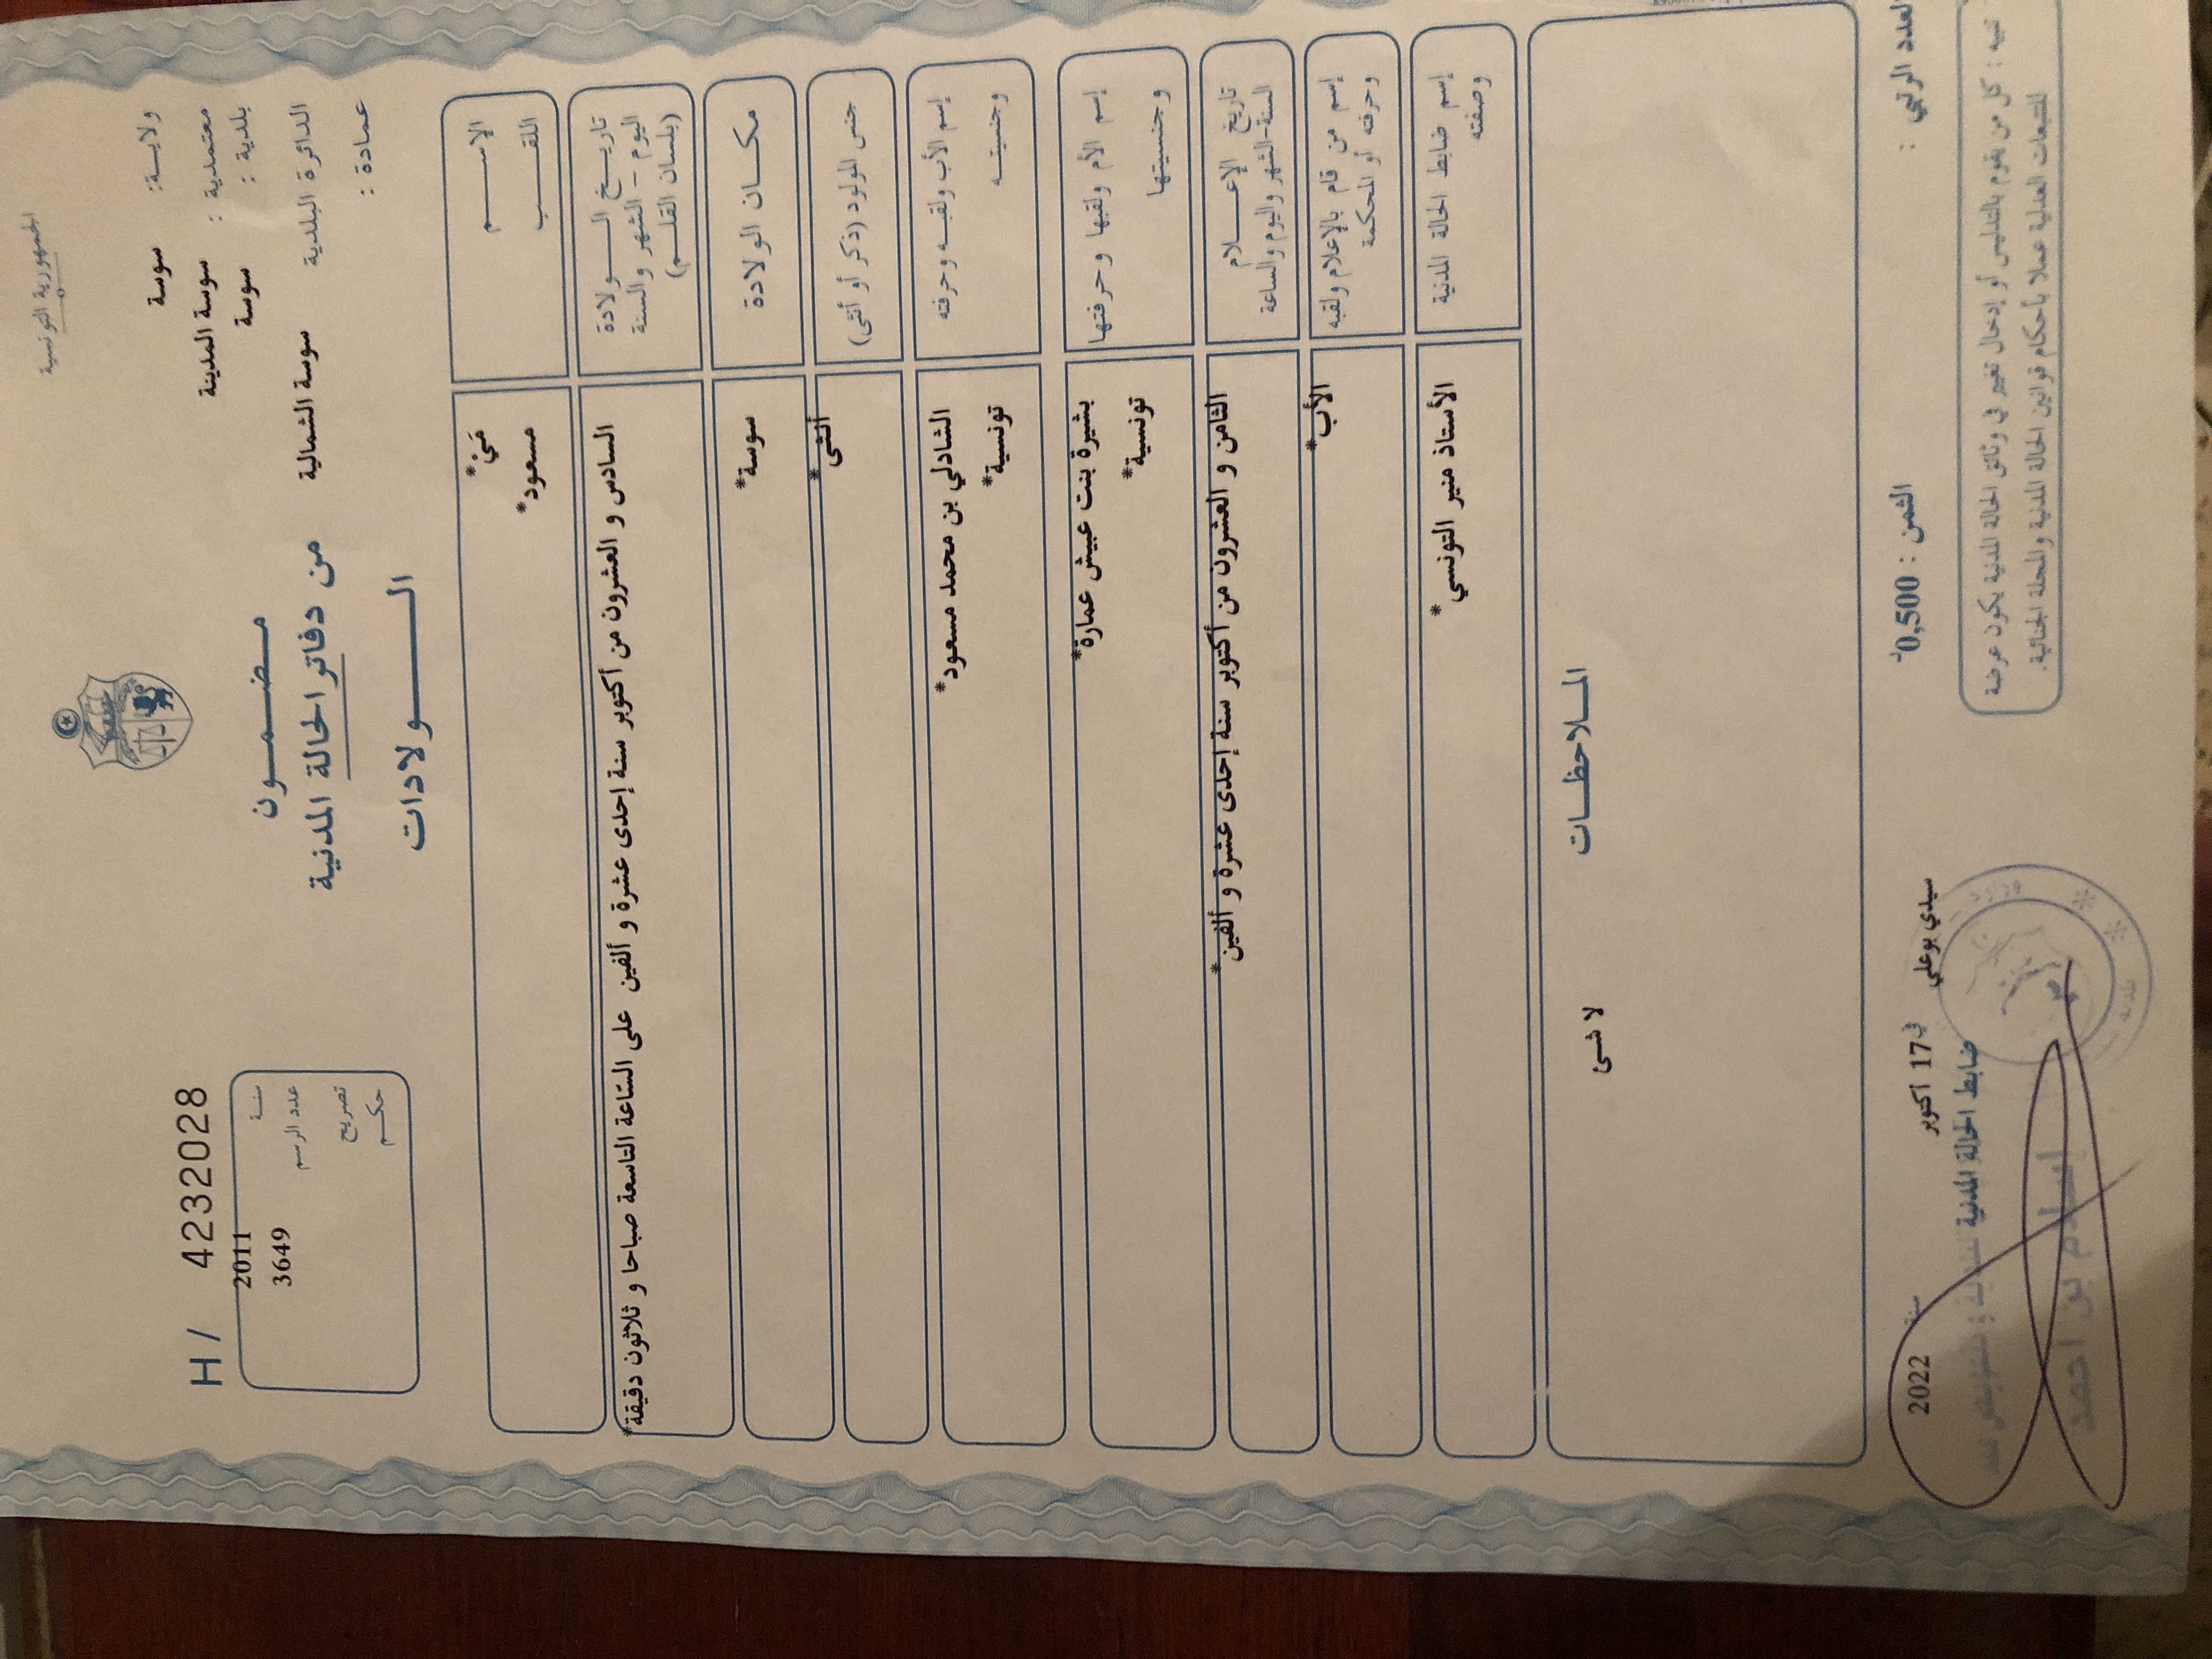 الجمهورية التونسية
ولاية: سوسة
معتمدية : سوسة المدينة
بلدية : سوسة
الدائرة البلدية سوسة الشمالية
عمادة :
مضمون
من دفاتر الحالة المدنية
الولادات
H / 4232028
سنة 2011
عدد الرسم 3649
تصريح
حكم
الإسم مَيْ*
اللقب مسعود*
تاريخ الولادة
اليوم - الشهر والسنة
(بلسان القلم)
السادس و العشرون من أكتوبر سنة إحدى عشرة و ألفين على الساعة التاسعة صباحا و ثلاثون دقيقة*
مكان الولادة سوسة*
جنس المولود (ذكر أو أنثى) أنثى*
إسم الأب ولقبه وحرفته الشاذلي بن محمد مسعود*
وجنسيته تونسية*
إسم الأم ولقبها وحرفتها بشيرة بنت عبيش عمارة*
وجنسيتها تونسية*
تاريخ الإعلام
السنة-الشهر واليوم والساعة
الثامن و العشرون من أكتوبر سنة إحدى عشرة و ألفين*
إسم من قام بالإعلام ولقبه
وحرفته أو المحكمة
الأب*
إسم ضابط الحالة المدنية
وصفته
الأستاذ منير التونسي*
الملاحظات
لا شئ
العدد الرتبي :
الثمن : 0,500د
سيدي بوعلي في 17 أكتوبر سنة 2022
ضابط الحالة المدنية
إسلام بن احمد
تنبيه : كل من يقوم بالتدليس أو إدخال تغيير في وثائق الحالة المدنية يكون عرضة
للتتبعات العدلية عملا بأحكام قوانين الحالة المدنية والمجلة الجنائية.